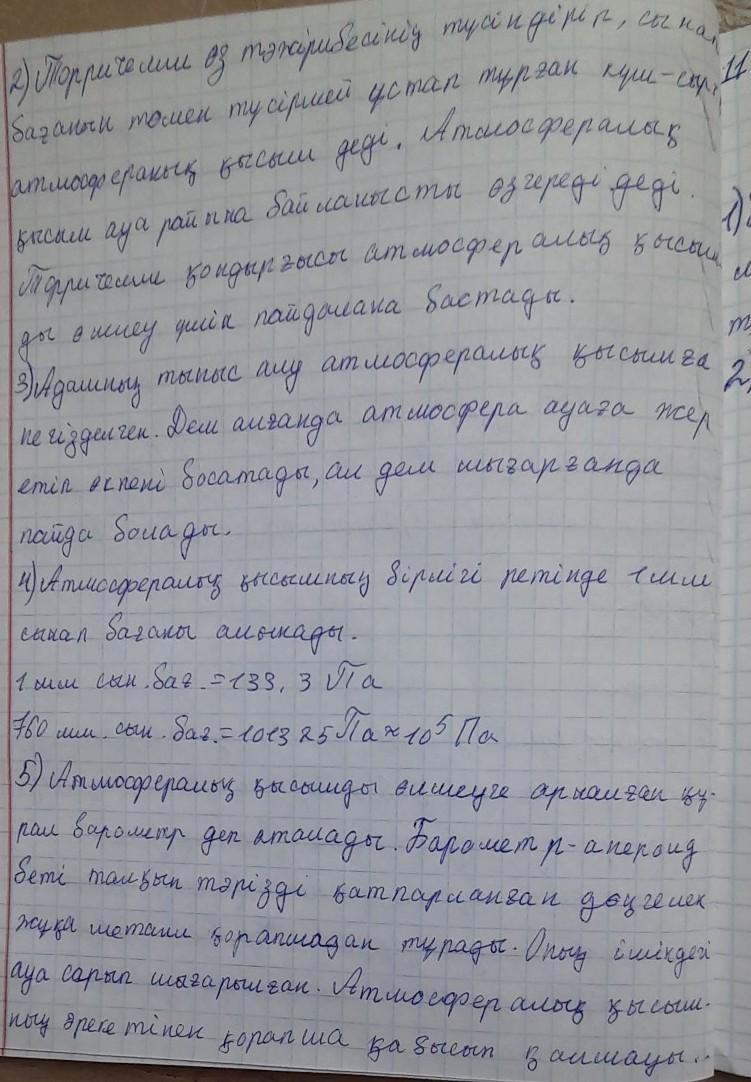 2) Торричелли өз тәжірибесінің түсіндіріп, сынап
бағанын төмен түсірмей ұстап тұрған күш-сырт
атмосфераның қысым деді. Атмосфералық
қысым ауа райына байланысты өзгереді деді.
Торричелли қондырғысы атмосфералық қысым
ды өлшеу үшін пайдалана бастады.
3) Адамның тыныс алу атмосфералық қысымға
негізделген. Дем алғанда атмосфера ауаға жер
етіп өкпені босатады, ал дем шығарғанда
пайда болады.
4) Атмосфералық қысымның бірлігі ретінде 1мм
сынап бағаны алынады.
1мм сын.бағ.=133,3 Па
760 мм.сын.бағ.=101325Па≈10⁵ Па
5) Атмосфералық қысымды өлшеуге арналған құ-
рал барометр деп аталады. Барометр-анероид
беті толқын тәрізді қатпарланған дөңгелек
жұқа металл қорапшадан тұрады. Оның ішіндегі
ауа сарып шығарылған. Атмосфералық қысым-
ның әрекетінен қорапша қабысып қалмауы..
11
1)
2,